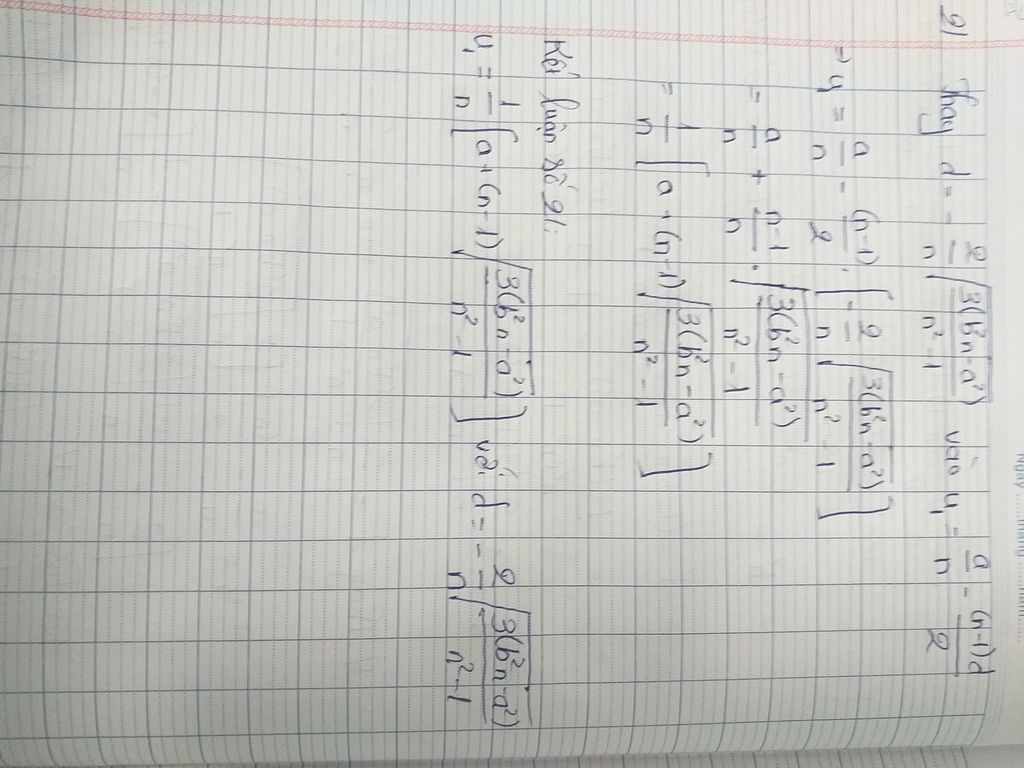 2) Thay d = - 2/n √(3(b²n - a²)/(n² - 1)) vào u₁ = a/n - (n-1)d/2
=> u₁ = a/n - (n-1)/2 . [ - 2/n √(3(b²n - a²)/(n² - 1)) ]
= a/n + (n-1)/n . √(3(b²n - a²)/(n² - 1))
= 1/n [ a + (n-1) √(3(b²n - a²)/(n² - 1)) ]
Kết luận số 2:
u₁ = 1/n [ a + (n-1) √(3(b²n - a²)/(n² - 1)) ] với d = - 2/n √(3(b²n - a²)/(n² - 1))
Ngày